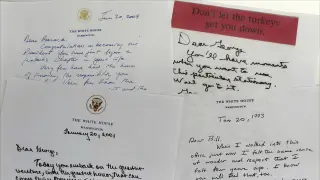 THE WHITE HOUSE
WASHINGTON
Jan 20, 2009
Dear Barack,
Congratulations on becoming our
President. You have just begun a
fantastic chapter in your life.
Very few have had the honor
of knowing the responsibility you
Don't let the turkeys
get you down.
Dear George,
You'll have moments
when you want to use
this particular stationery.
Well, go to it.
THE WHITE HOUSE
WASHINGTON
January 20, 2001
Dear George,
Today you embark on the greatest
venture, with the greatest honor, that can
THE WHITE HOUSE
WASHINGTON
Jan 20, 1993
Dear Bill,
When I walked into this
office just now I felt the same sense
of wonder and respect that I
felt four years ago. I know
you will feel that too.